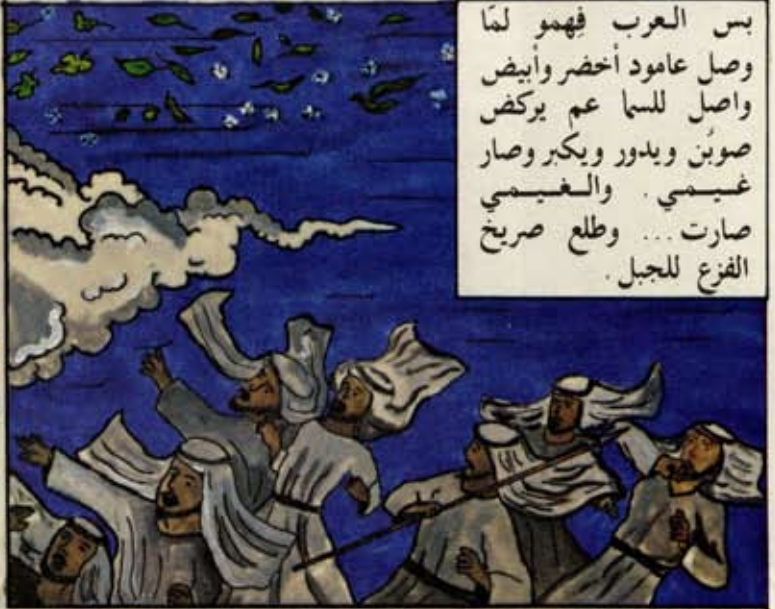 بس العرب فِهمو لمّا
وصل عامود أخضر وأبيض
واصل للسما عم يركض
صوبُن ويدور ويكبر وصار
غـيـمـي. والـغـيـمـي
صارت... وطلع صريخ
الفزع للجبل.